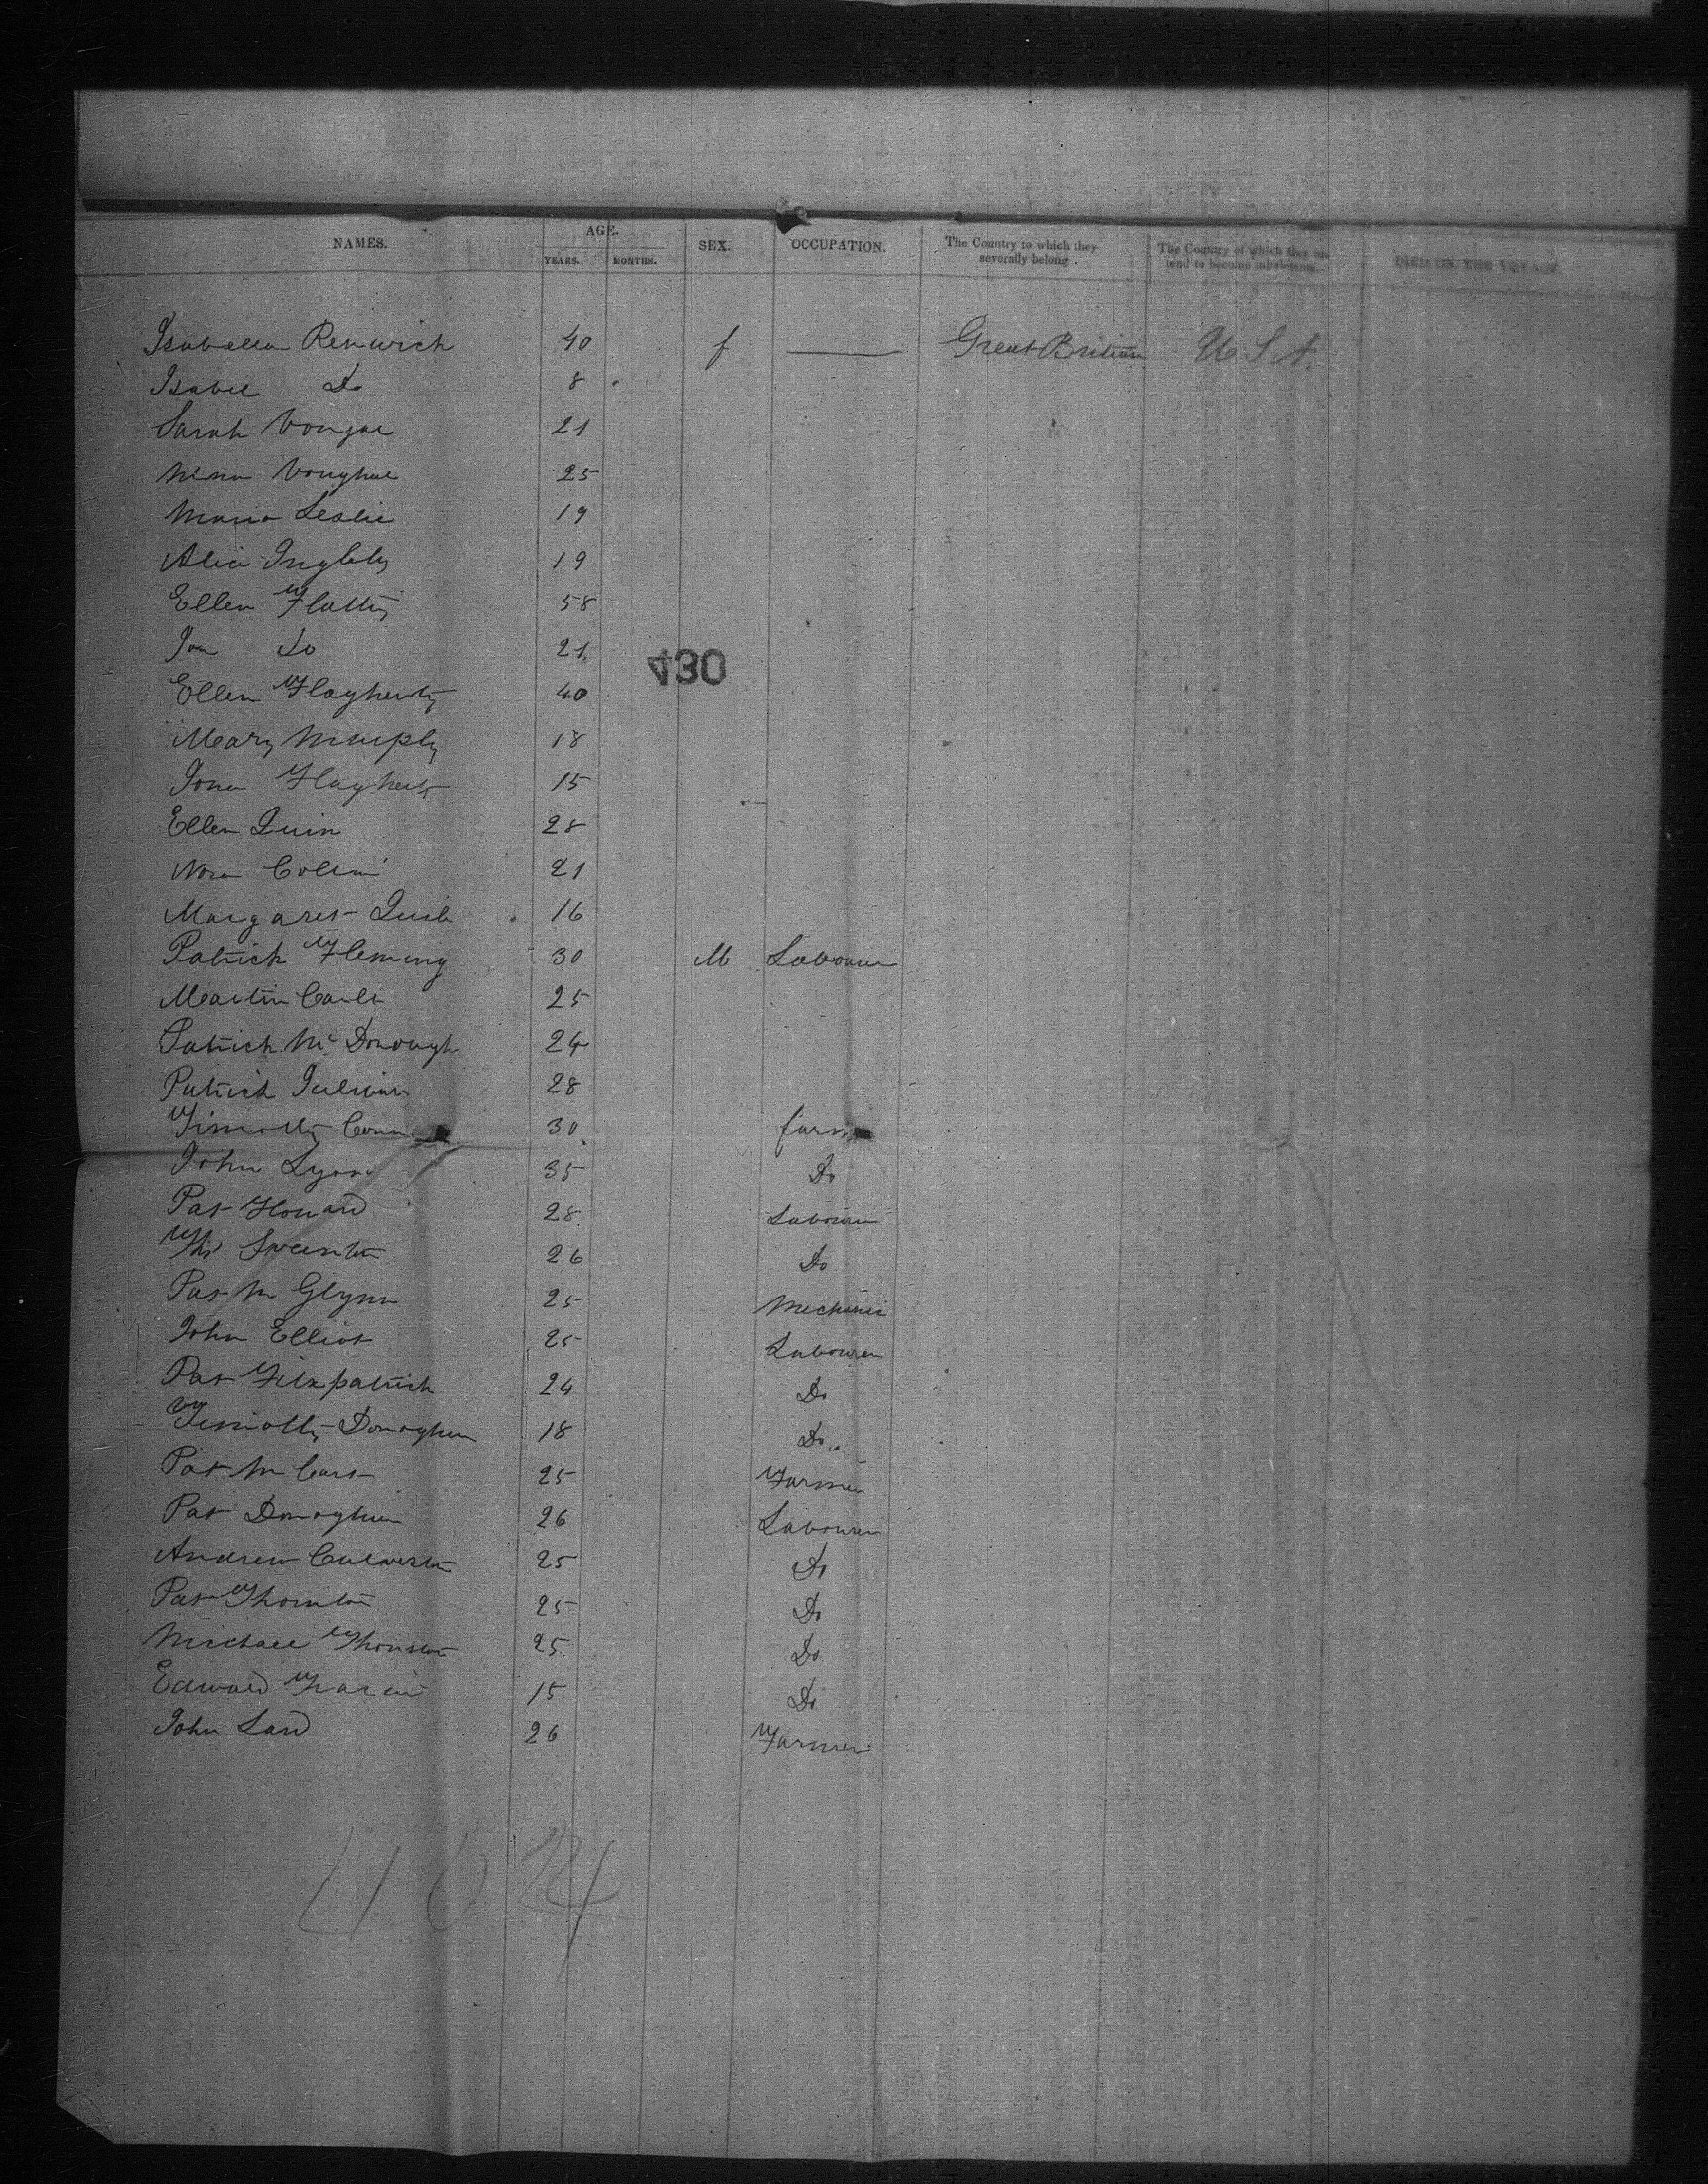 NAMES. AGE. YEARS. MONTHS. SEX. OCCUPATION. The Country to which they severally belong. The Country of which they intend to become inhabitants DIED ON THE VOYAGE.
Isabella Renwick 40 f — Great Britian U S A.
Isabel Do 8
Sarah 21
25
Maria Leslie 19
Alice Ingleby 19
Ellen 58
Do 21
430
Ellen Flagherty 40
Mary Murphy 18
Flagherty 15
Ellen Quin 28
Nora Collins 21
Margaret 16
Patrick Fleming 30 M Labourer
Martin 25
Patrick Mc Donough 24
Patrick 28
Timothy 30
John Lyons 35 Do
Pat Howard 28 Labourer
Ths Swanton 26 Do
Pat M Glynn 25 Mechanic
John Elliot 25 Labourer
Pat Fitzpatrick 24 Do
Timothy Donoghue 18 Do
Pat 25 Farmer
Pat Donoghue 26 Labourer
Andrew 25 Do
Pat Thornton 25 Do
Michael Thornton 25 Do
Edward 15 Do
John 26 Farmer